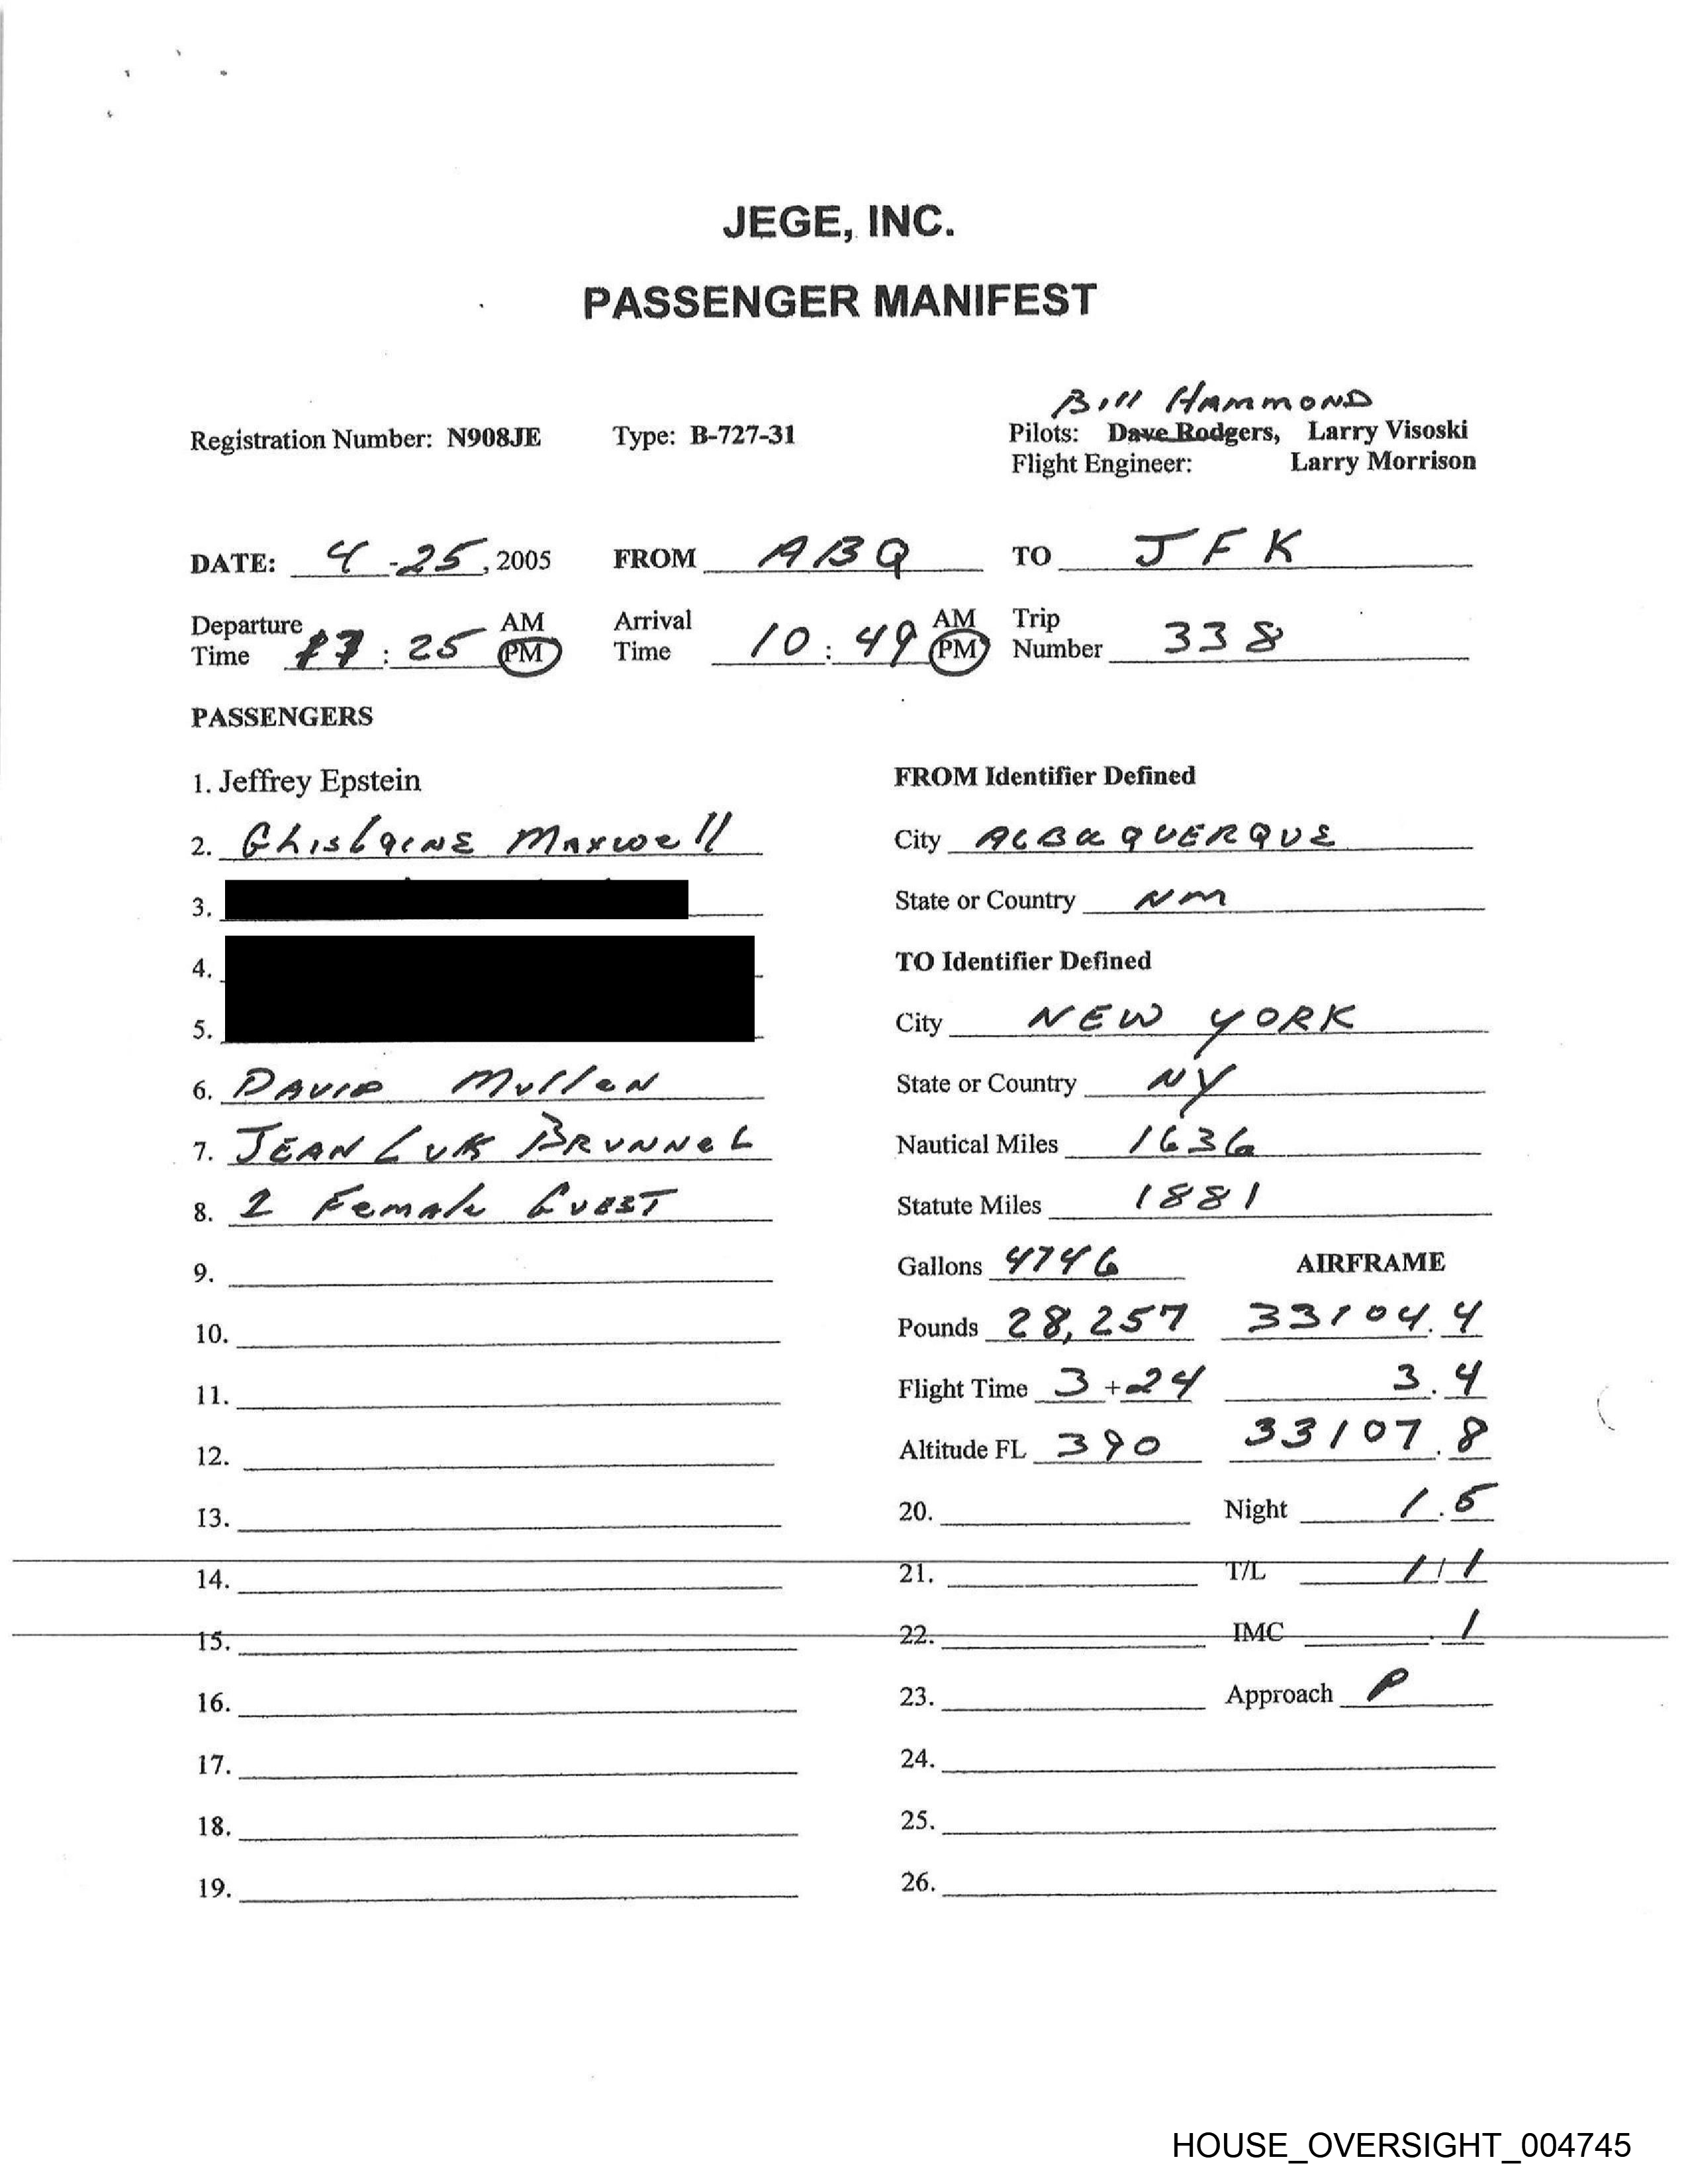 JEGE, INC.
PASSENGER MANIFEST
Bill Hammond
Registration Number: N908JE Type: B-727-31 Pilots: Dave Rodgers, Larry Visoski
Flight Engineer: Larry Morrison
DATE: 4-25, 2005 FROM ABQ TO JFK
Departure Time 7:25 AM PM Arrival Time 10:49 AM PM Trip Number 338
PASSENGERS
1. Jeffrey Epstein FROM Identifier Defined
2. Ghislaine Maxwell City ALBUQUERQUE
3. State or Country NM
4. TO Identifier Defined
5. City NEW YORK
6. David Mullen State or Country NY
7. JEAN LUK BRUNNEL Nautical Miles 1636
8. 2 Female Guest Statute Miles 1881
9. Gallons 4746 AIRFRAME
10. Pounds 28,257 33104.4
11. Flight Time 3+24 3.4
12. Altitude FL 390 33107.8
13. 20. Night 1.5
14. 21. T/L 1/1
15. 22. IMC .1
16. 23. Approach P
17. 24.
18. 25.
19. 26.
HOUSE_OVERSIGHT_004745